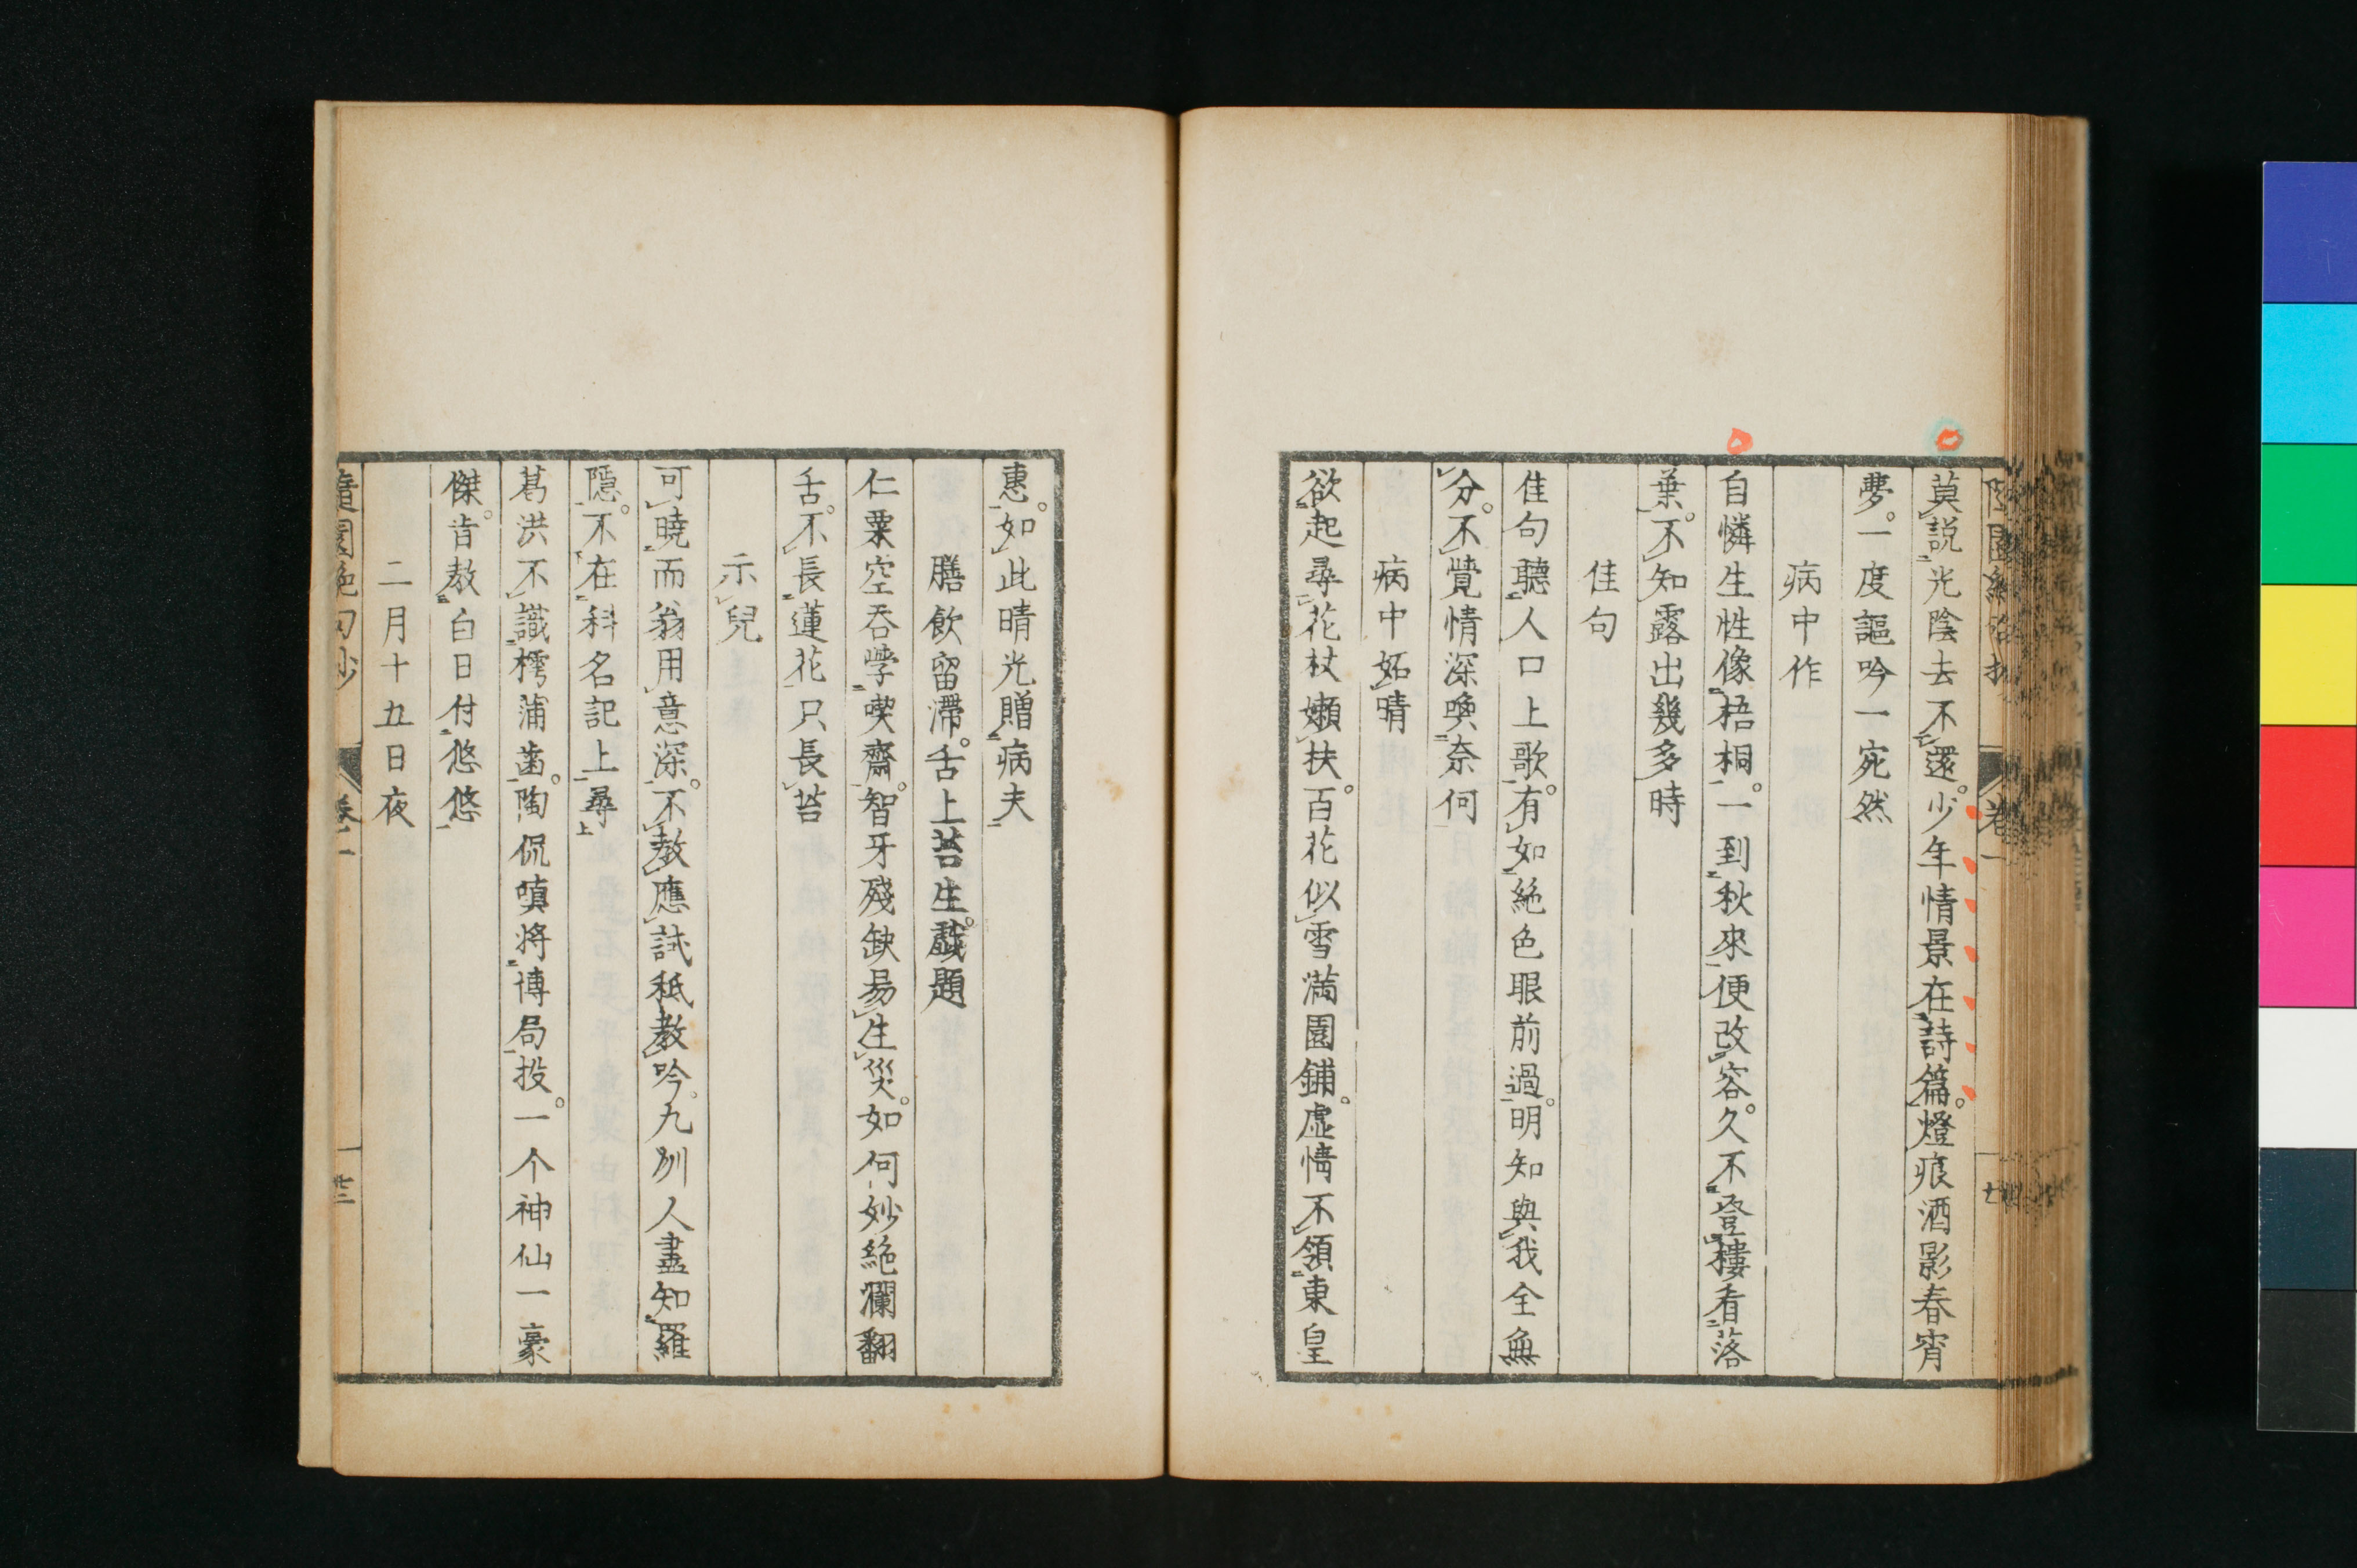 莫説光陰去不還。少年情景在詩篇。燈痕酒影春宵
夢。一度謳吟一宛然
病中作
自憐生性像梧桐。一到秋來便改容。久不登樓看落
葉。不知露出幾多時
佳句
佳句聽人口上歌。有如絶色眼前過。明知與我全無
分。不覺情深喚奈何
病中妬晴
欲起尋花杖嬾扶。百花似雪満園鋪。虛情不領東皇
惠。如此晴光贈病夫
膳飲留滯。舌上苔生。戲題
仁粟空吞學喫齋。智牙殘缺易生災。如何妙絶瀾翻
舌。不長蓮花只長苔
示兒
可曉而翁用意深。不教應試秖教吟。九州人盡知羅
隱。不在科名記上尋
葛洪不識樗蒲齒。陶侃嗔將博局投。一个神仙一豪
傑。肯教白日付悠悠
二月十五日夜
隨園絶句抄 卷一